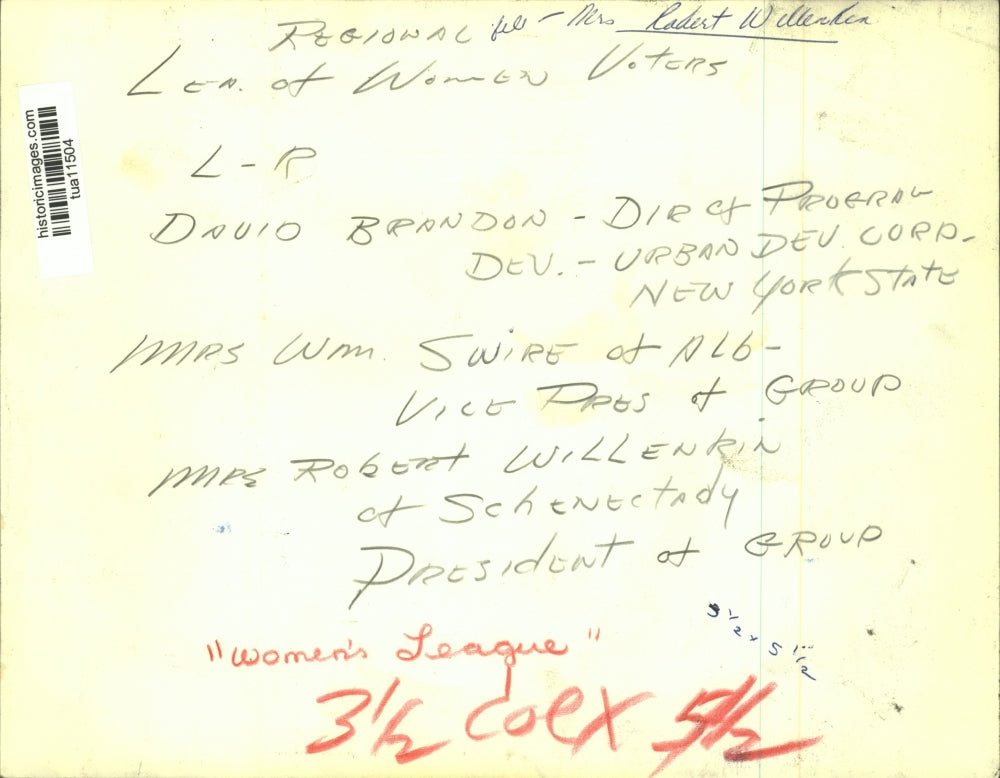 REGIONAL
file - Mrs Robert Willenkin
LEA. of WOMEN VOTERS
historicimages.com
tua11504
L-R
DAVID BRANDON - DIR of PROGRAM
DEV. - URBAN DEV. CORP. -
NEW YORK STATE
MRS Wm. SWIRE of Alb -
VICE PRES of GROUP
MRS ROBERT WILLENKIN
of SchENECTAdy
PRESIdENT of GROUP
3 1/2 x 5 1/2
"Women's League"
3 1/2 col x 5 1/2